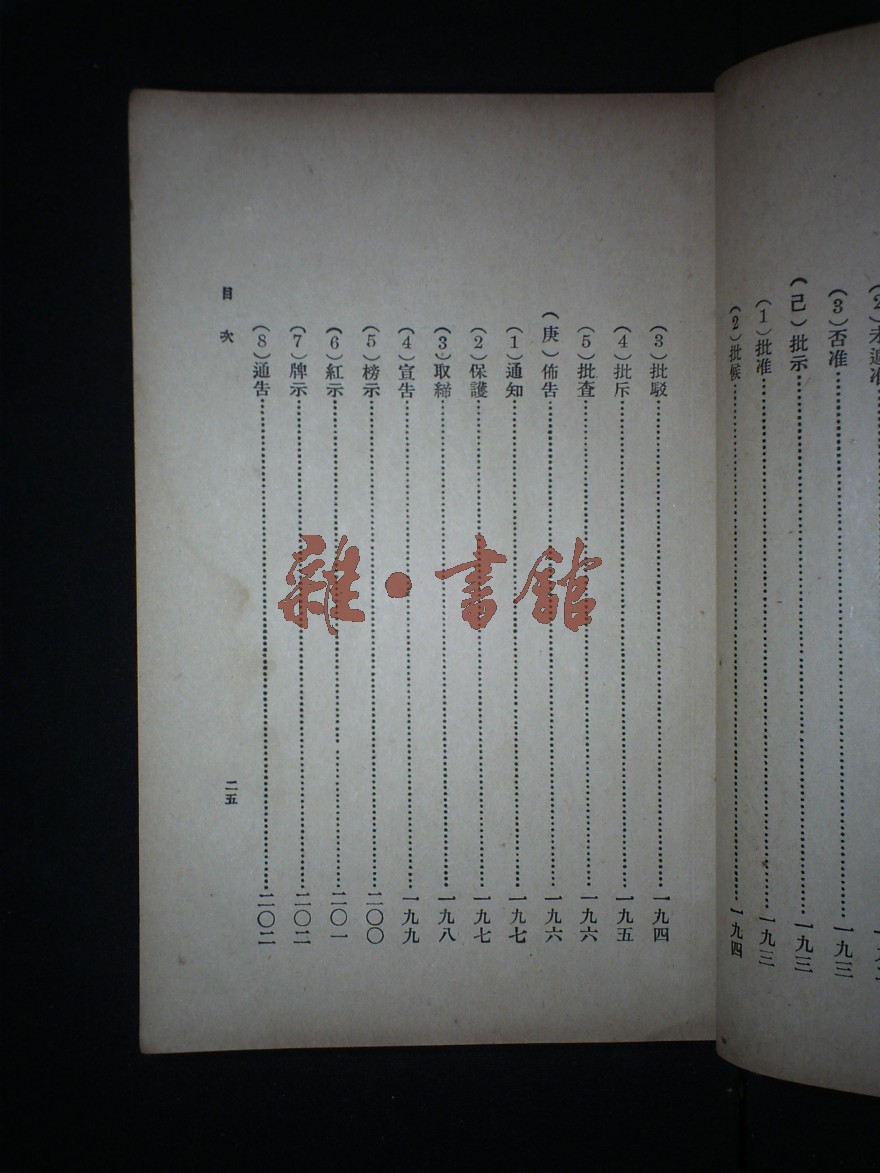 (3)否准⋯⋯一九三
(己)批示⋯⋯一九三
(1)批准⋯⋯一九三
(2)批候⋯⋯一九四
(3)批駁⋯⋯一九四
(4)批斥⋯⋯一九五
(5)批查⋯⋯一九六
(庚)佈告⋯⋯一九六
(1)通知⋯⋯一九七
(2)保護⋯⋯一九七
(3)取締⋯⋯一九八
(4)宣告⋯⋯一九九
(5)榜示⋯⋯二〇〇
(6)紅示⋯⋯二〇一
(7)牌示⋯⋯二〇二
(8)通告⋯⋯二〇二
目次
二五
雜·書館